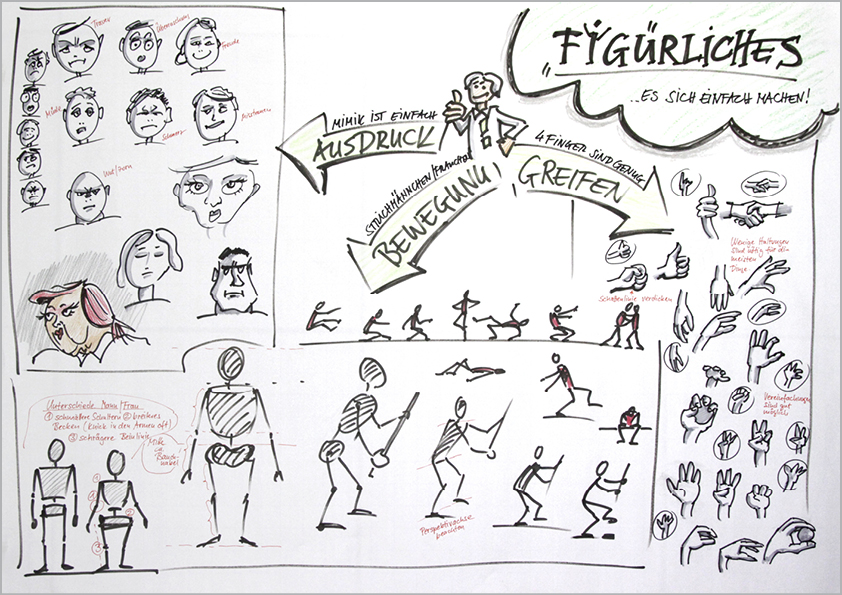 FIGÜRLICHES
...ES SICH EINFACH MACHEN!
MIMIK IST EINFACH
AUSDRUCK
STRICHMÄNNCHEN/FRAUCHEN
BEWEGUNG
4 FINGER SIND GENUG
GREIFEN
Trauer
Überraschung
Freude
Müde
Schmerz
Misstrauen
Wut/Zorn
Wenige Haltungen
sind nötig für die
meisten
Dinge.
Schattenlinie verdicken
Vereinfachungen
sind gut
möglich
Unterschiede Mann/Frau
① schmalere Schultern ② breiteres
Becken (Knick in den Armen oft)
③ schrägere Beinlinie
Mitte
ist
Bauch-
nabel
①
②
③
Perspektivachse
beachten